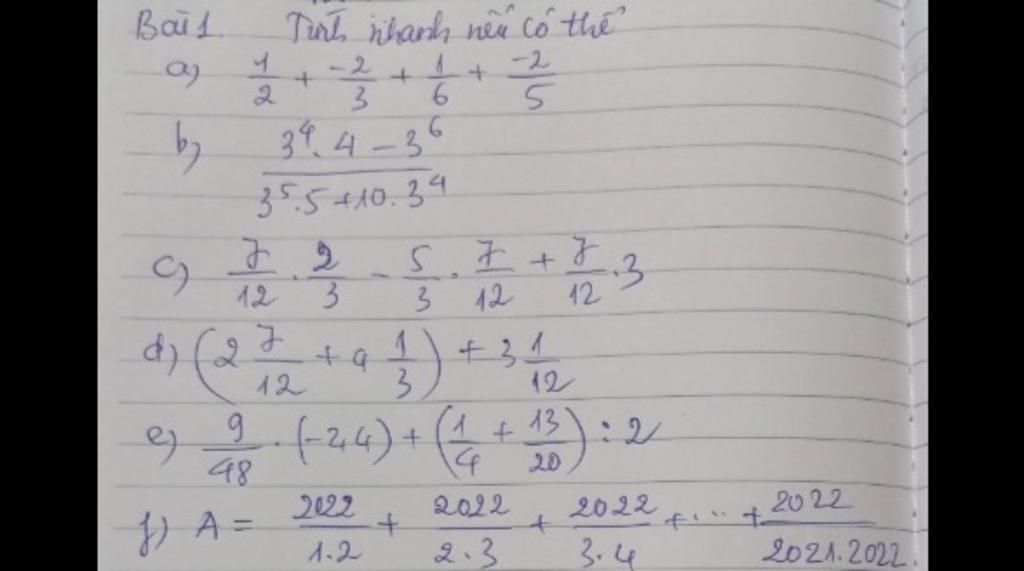 Bài 1. Tính nhanh nếu có thể
a) 1/2 + -2/3 + 1/6 + -2/5
b) (3^4 . 4 - 3^6)/(3^5 . 5 + 10 . 3^4)
c) 7/12 . 2/3 - 5/3 . 7/12 + 7/12 . 3
d) (2 7/12 + 4 1/3) + 3 1/12
e) 9/48 . (-2,4) + (1/4 + 13/20) : 2
f) A = 2022/1.2 + 2022/2.3 + 2022/3.4 + ... + 2022/2021.2022